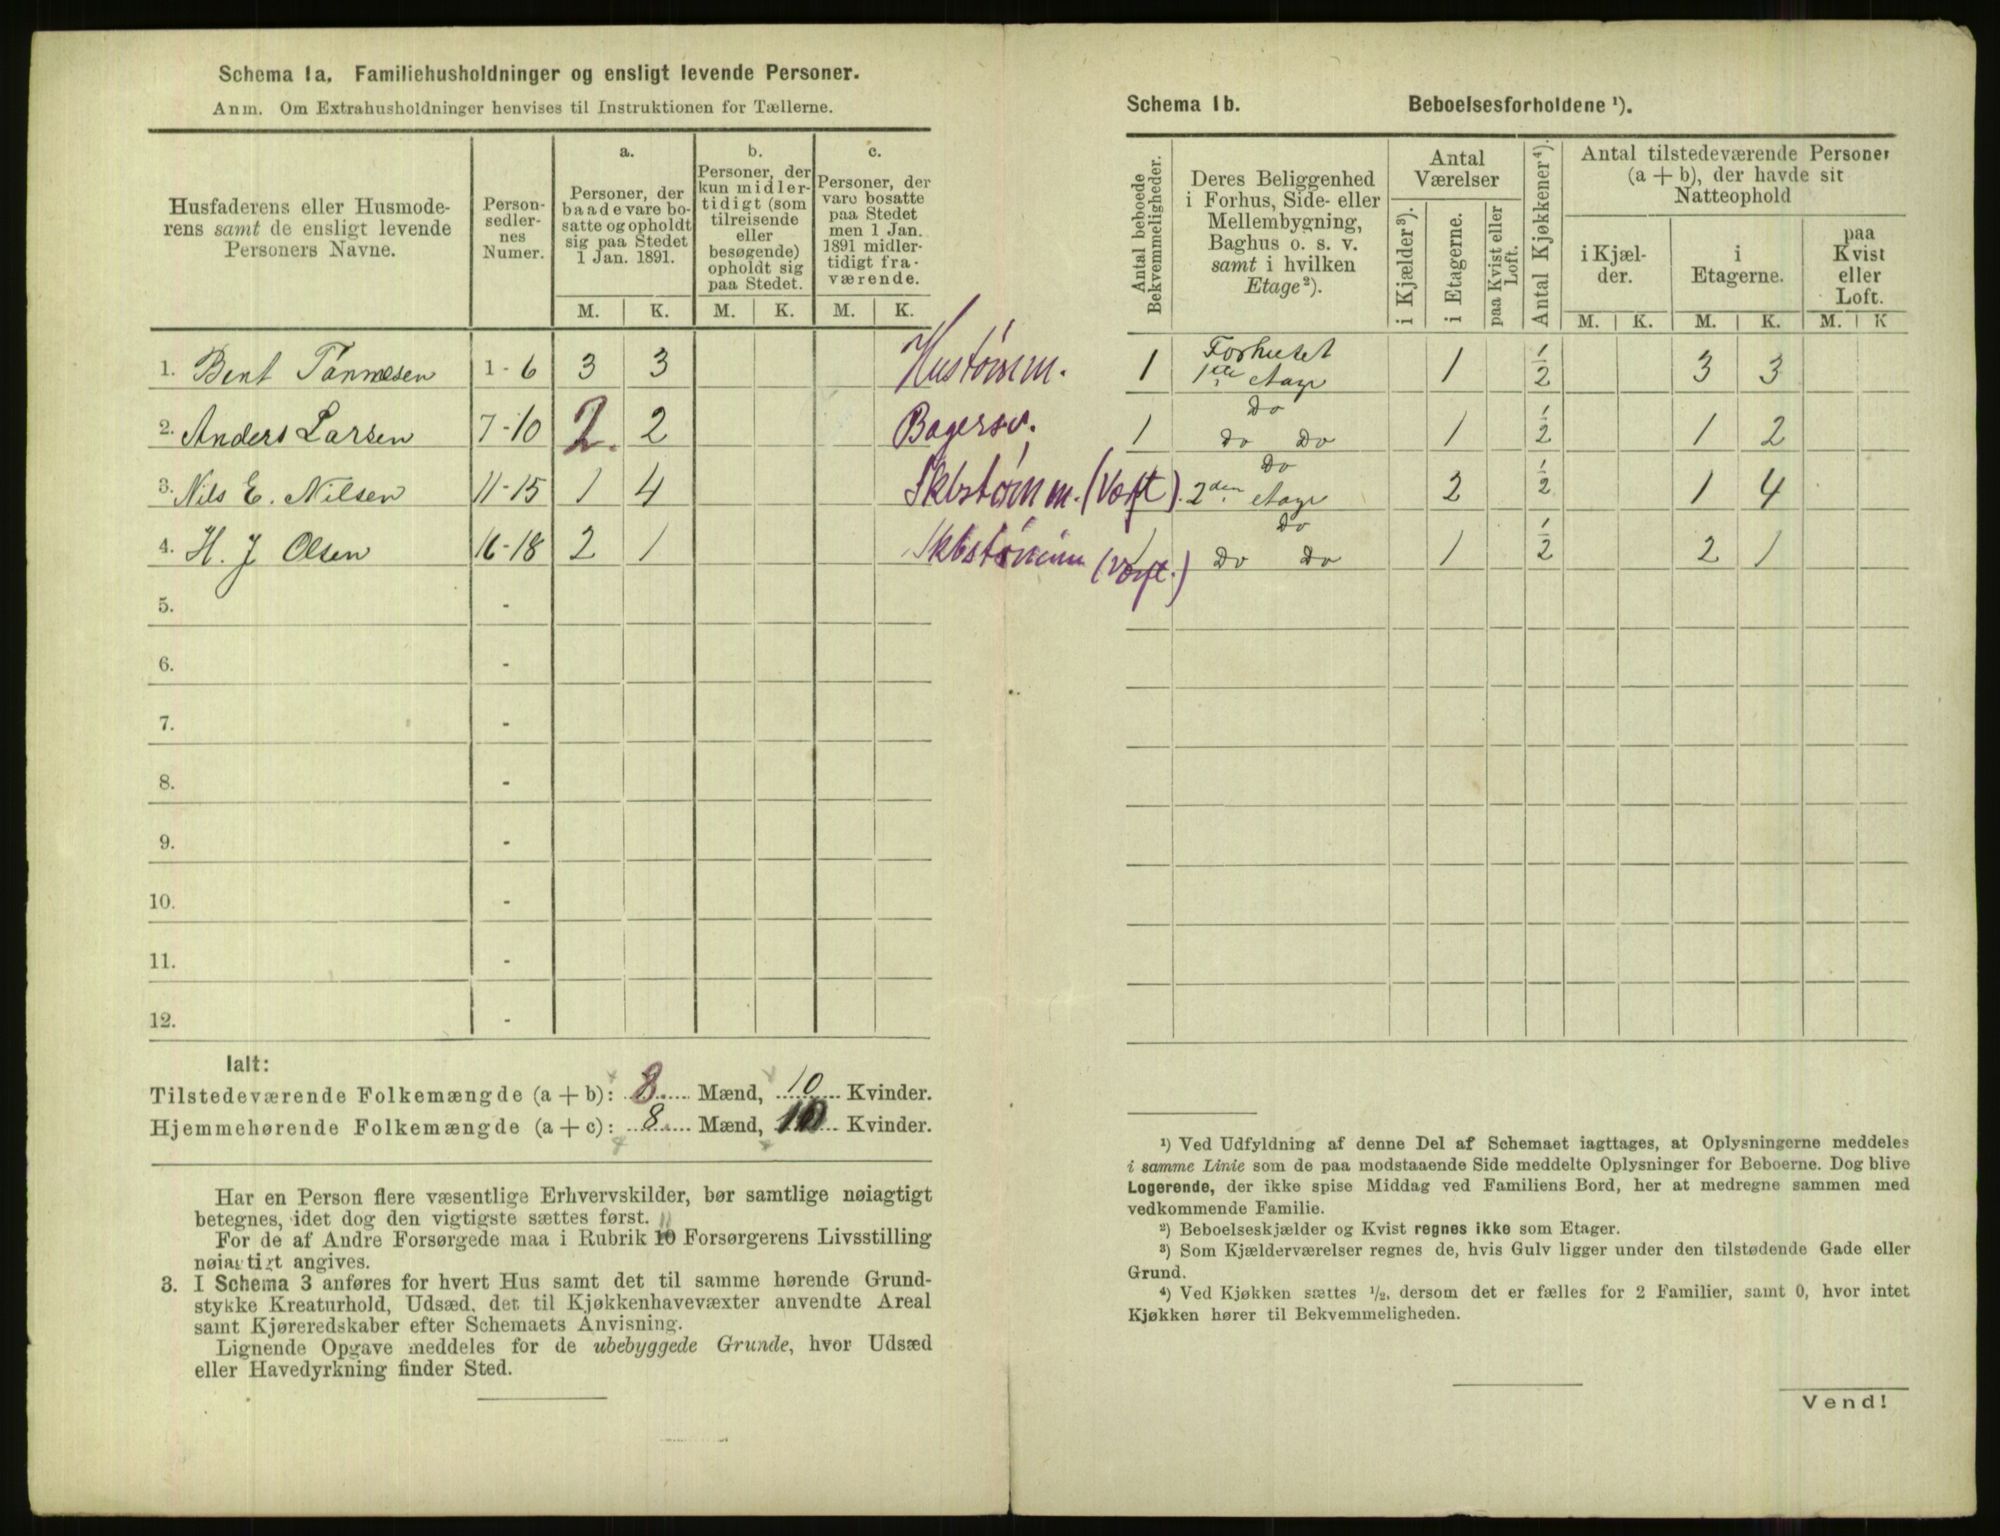 Schema 1a. Familiehusholdninger og ensligt levende Personer.
Anm. Om Extrahusholdninger henvises til Instruktionen for Tællerne.
Husfaderens eller Husmode-
rens samt de ensligt levende
Personers Navne.
Person-
sedler-
nes
Numer.
a.
Personer, der
baade vare bo-
satte og opholdt
sig paa Stedet
1 Jan. 1891.
b.
Personer, der
kun midler-
tidigt (som
tilreisende
eller
besøgende)
opholdt sig
paa Stedet.
c.
Personer, der
vare bosatte
paa Stedet
men 1 Jan.
1891 midler-
tidigt fra-
værende.
M. K. M. K. M. K.
1. Bent Tønnesen 1-6 3 3 Hustømm.
2. Anders Larsen 7-10 2. 2 Bagersv.
3. Nils E. Nilsen 11-15 1 4 Skbstømm. (Værft)
4. H. J Olsen 16-18 2 1 Skbstømm (Værft.)
5. -
6. -
7. -
8. -
9. -
10. -
11. -
12. -
Ialt:
Tilstedeværende Folkemængde (a + b): 8 Mænd, 10 Kvinder.
Hjemmehørende Folkemængde (a + c): 8 Mænd, 10 Kvinder.
Har en Person flere væsentlige Erhvervskilder, bør samtlige nøiagtigt
betegnes, idet dog den vigtigste sættes først.
For de af Andre Forsørgede maa i Rubrik 11 Forsørgerens Livsstilling
nøiagtigt angives.
3. I Schema 3 anføres for hvert Hus samt det til samme hørende Grund-
stykke Kreaturhold, Udsæd, det til Kjøkkenhavevæxter anvendte Areal
samt Kjøreredskaber efter Schemaets Anvisning.
Lignende Opgave meddeles for de ubebyggede Grunde, hvor Udsæd
eller Havedyrkning finder Sted.
Schema 1b. Beboelsesforholdene ¹).
Antal beboede
Bekvemmeligheder.
Deres Beliggenhed
i Forhus, Side- eller
Mellembygning,
Baghus o. s. v.
samt i hvilken
Etage²).
Antal
Værelser
i Kjælder³).
i Etagerne.
paa Kvist eller
Loft.
Antal Kjøkkener⁴).
Antal tilstedeværende Personer
(a + b), der havde sit
Natteophold
i Kjæl-
der.
i
Etagerne.
paa
Kvist
eller
Loft.
M. K. M. K. M. K
1 Forhuset 1ste etage 1 ½ 3 3
1 Do Do Do 1 ½ 1 2
Do 2den etage 2 ½ 1 4
1 Do Do Do 1 ½ 2 1
¹) Ved Udfyldning af denne Del af Schemaet iagttages, at Oplysningerne meddeles
i samme Linie som de paa modstaaende Side meddelte Oplysninger for Beboerne. Dog blive
Logerende, der ikke spise Middag ved Familiens Bord, her at medregne sammen med
vedkommende Familie.
²) Beboelseskjælder og Kvist regnes ikke som Etager.
³) Som Kjælderværelser regnes de, hvis Gulv ligger under den tilstødende Gade eller
Grund.
⁴) Ved Kjøkken sættes ½, dersom det er fælles for 2 Familier, samt 0, hvor intet
Kjøkken hører til Bekvemmeligheden.
Vend!